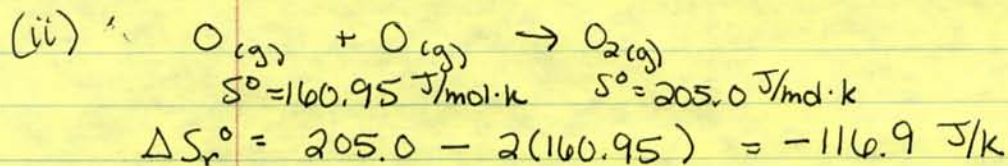 (ii) O(g) + O(g) → O2(g)
S° = 160.95 J/mol·k S° = 205.0 J/mol·k
ΔSr° = 205.0 - 2(160.95) = -116.9 J/k